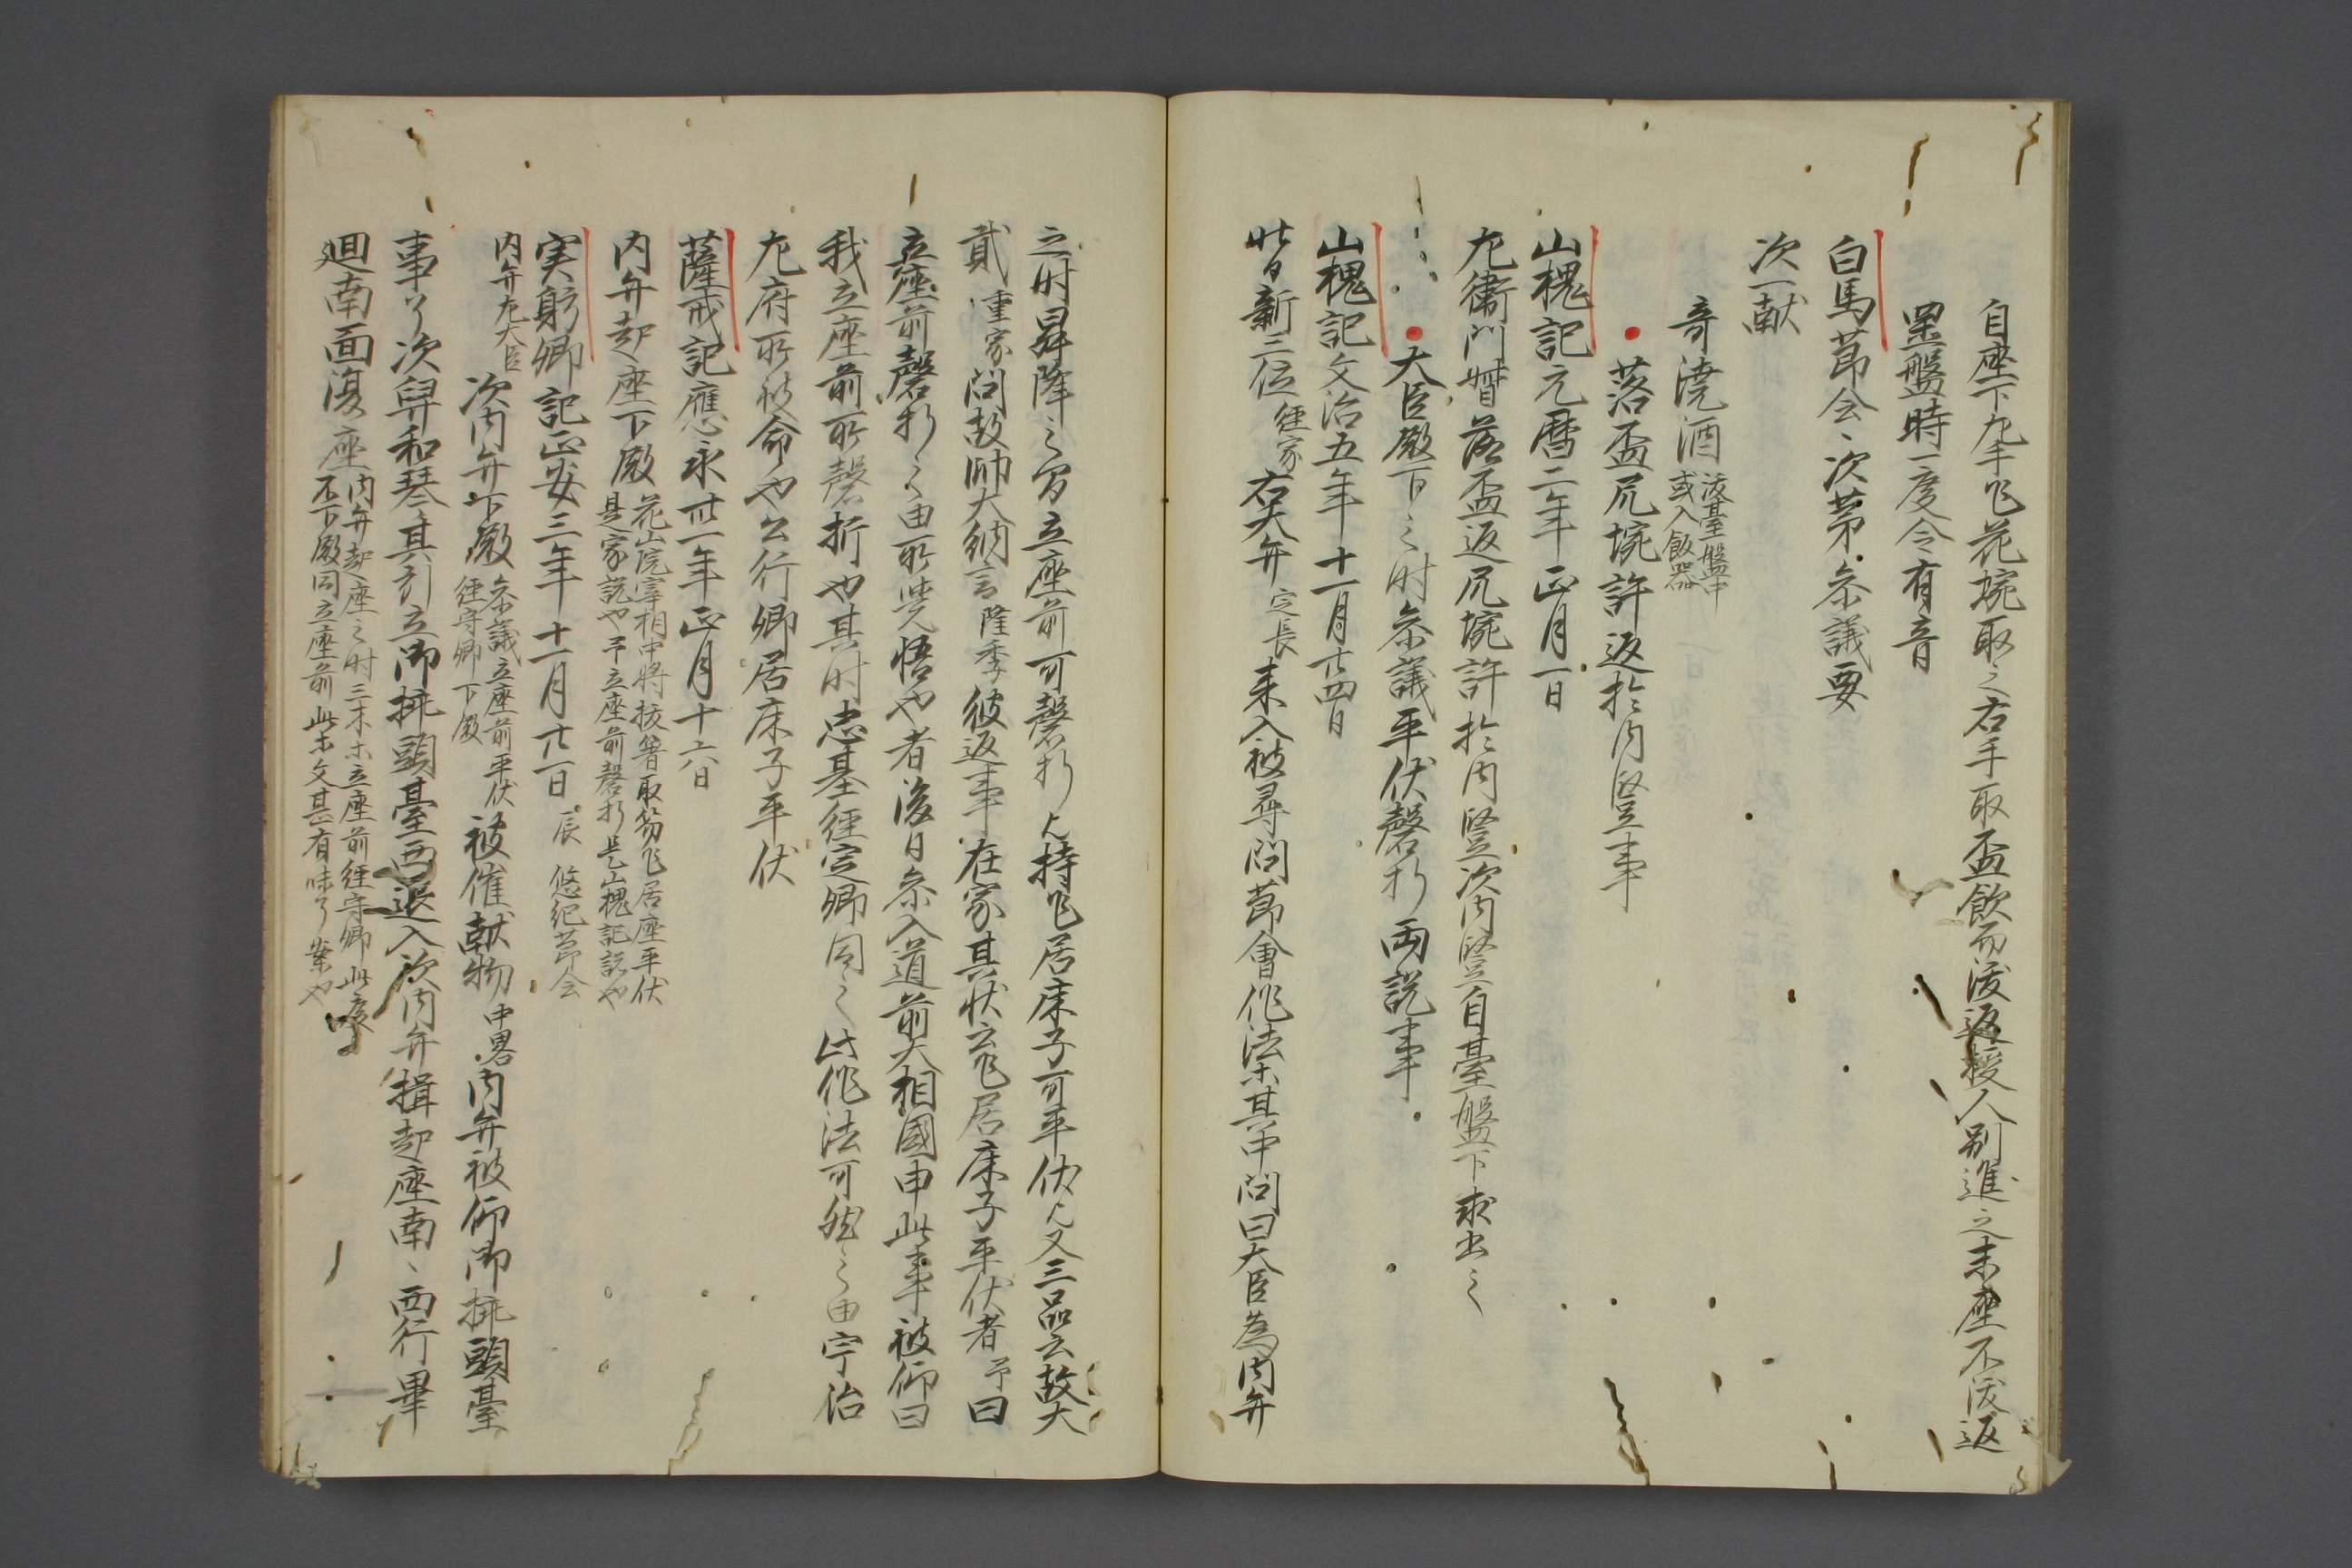 自座下左手乍花垸取之右手取盃飲而後返授人別進之末座不後返
置盤時一度令有音
白馬節会次第参議要
次一献
奇澆酒 或入飯器 後臺盤中
落盃尻垸許返於内竪事
山槐記元暦二年正月一日
左衛門督落盃返尻垸許於内竪次内竪自臺盤下求出之
大臣殿下之時参議平伏磬折両説事
山槐記文治五年十一月廿四日
昔新三位 経家 右大弁 定長 来入被尋問節會作法等其中問曰大臣為内弁
之時昇降之間立座前可磬折欤持乍居床子可平伏欤又三品云故大
貳 重家 問故帥大納言 隆季 彼返事在家其状云乍居床子平伏者予曰
立座前磬折之由所覚悟也者後日参入道前大相國申此事被仰曰
我立座前所磬折也其時忠基経定卿同之此作法可然之由宇治
左府所被命也公行卿居床子平伏
薩戒記應永卅一年正月十六日
内弁起座下殿 花山院宰相中将抜箸取笏乍居座平伏 是家説也予立座前磬折是山槐記説也
実躬卿記正安三年十一月廿一日 辰 悠紀節会
内弁左大臣 次内弁下殿 参議立座前平伏 経守卿下殿 被催献物 中畧 内弁被仰御挿頭臺
事了次舁和琴其引立御挿頭臺西退入次内弁揖起座南々西行畢
廻南面復座 内弁起座之時三木等立座前経守卿此度 不下殿同立座前此等文甚有味了案也